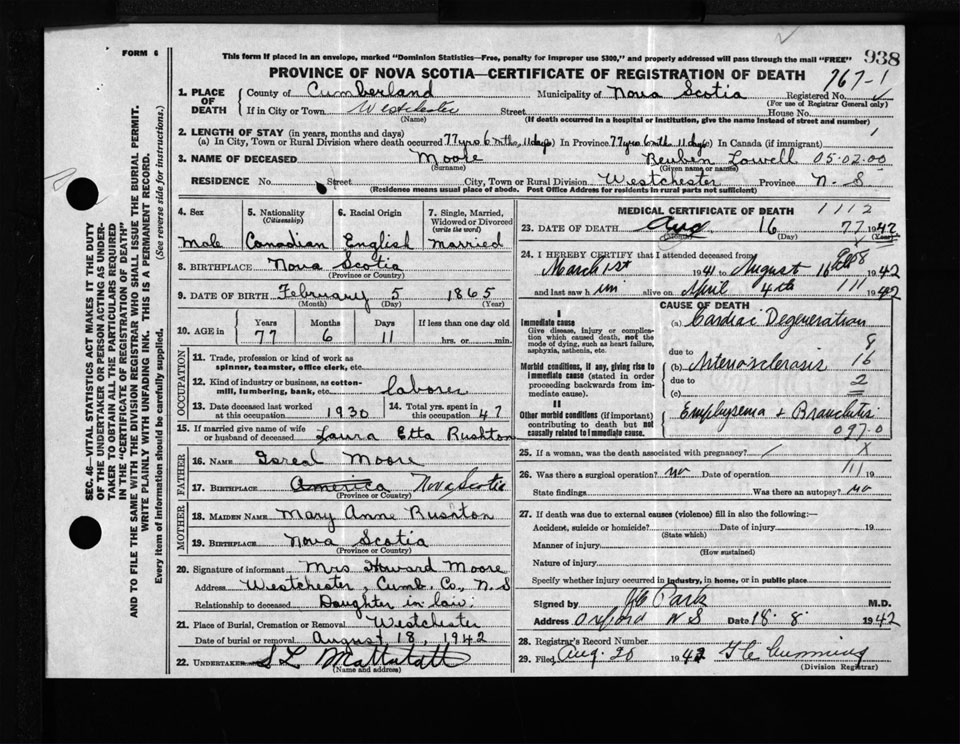 FORM 6
This form if placed in an envelope, marked "Dominion Statistics—Free, penalty for improper use $300," and properly addressed will pass through the mail "FREE"
938
PROVINCE OF NOVA SCOTIA—CERTIFICATE OF REGISTRATION OF DEATH
767-1
1. PLACE OF DEATH
County of Cumberland Municipality of Nova Scotia Registered No.
(For use of Registrar General only)
If in City or Town Westchester Street House No.
(Name) (If death occurred in a hospital or institution, give the name instead of street and number)
2. LENGTH OF STAY (in years, months and days)
(a) In City, Town or Rural Division where death occurred 77 yrs 6 mths, 11 days In Province 77 yrs 6 mths 11 days In Canada (if immigrant)
3. NAME OF DECEASED Moore Reuben Lowell 05.02.00
(Surname) (Given name or names)
RESIDENCE No. Street City, Town or Rural Division Westchester Province N-S
(Residence means usual place of abode. Post Office Address for residents in rural parts not sufficient)
4. Sex 5. Nationality 6. Racial Origin 7. Single, Married,
(Citizenship) Widowed or Divorced
(write the word)
Male Canadian English Married
8. BIRTHPLACE Nova Scotia
(Province or Country)
9. DATE OF BIRTH February 5 1865
(Month) (Day) (Year)
10. AGE in Years Months Days If less than one day old
77 6 11 hrs. or min.
OCCUPATION
11. Trade, profession or kind of work as
spinner, teamster, office clerk, etc.
12. Kind of industry or business, as cotton-
mill, lumbering, bank, etc. laborer
13. Date deceased last worked 14. Total yrs. spent in
at this occupation 1930 this occupation 47
15. If married give name of wife
or husband of deceased Laura Etta Rushton
FATHER
16. NAME Isreal Moore
17. BIRTHPLACE America Nova Scotia
(Province or Country)
MOTHER
18. MAIDEN NAME Mary Anne Rushton
19. BIRTHPLACE Nova Scotia
(Province or Country)
20. Signature of informant Mrs Howard Moore
Address Westchester, Cumb. Co., N.S
Relationship to deceased Daughter in law.
21. Place of Burial, Cremation or Removal Westchester
Date of burial or removal August 18, 1942
22. UNDERTAKER S L Mattatall
(Name and address)
MEDICAL CERTIFICATE OF DEATH 1112
23. DATE OF DEATH Aug 16 1942
(Month) (Day) (Year)
77
24. I HEREBY CERTIFY that I attended deceased from
March 1st 1941 to August 16th 1942
and last saw him alive on April 4th 1942
CAUSE OF DEATH
I
Immediate cause
Give disease, injury or complication which caused death, not the mode of dying, such as heart failure, asphyxia, asthenia, etc.
(a) Cardiac Degeneration
9
Morbid conditions, if any, giving rise to immediate cause (stated in order proceeding backwards from immediate cause).
due to
(b) Arteriosclerosis 16
due to 2
(c)
II
Other morbid conditions (if important) contributing to death but not causally related to immediate cause.
Emphysema & Bronchitis
097.0
25. If a woman, was the death associated with pregnancy?
26. Was there a surgical operation? no Date of operation 19
State findings Was there an autopsy? no
27. If death was due to external causes (violence) fill in also the following:—
Accident, suicide or homicide? Date of injury 19
(State which)
Manner of injury
(How sustained)
Nature of injury
Specify whether injury occurred in industry, in home, or in public place
Signed by Park M.D.
Address Oxford N S Date 18.8. 1942
28. Registrar's Record Number
29. Filed Aug. 20 1942 Cumming
(Division Registrar)
SEC. 46—VITAL STATISTICS ACT MAKES IT THE DUTY
OF THE UNDERTAKER OR PERSON ACTING AS UNDER-
TAKER TO OBTAIN ALL THE PARTICULARS REQUIRED
IN THE "CERTIFICATE OF REGISTRATION OF DEATH"
AND TO FILE THE SAME WITH THE DIVISION REGISTRAR WHO SHALL ISSUE THE BURIAL PERMIT.
WRITE PLAINLY WITH UNFADING INK. THIS IS A PERMANENT RECORD.
Every item of information should be carefully supplied. (See reverse side for instructions.)